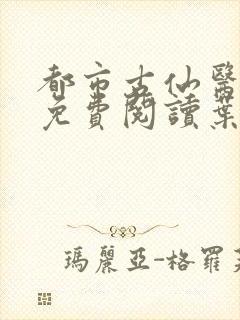 都市古仙醫
免費閱讀葉
瑪麗亞-格羅